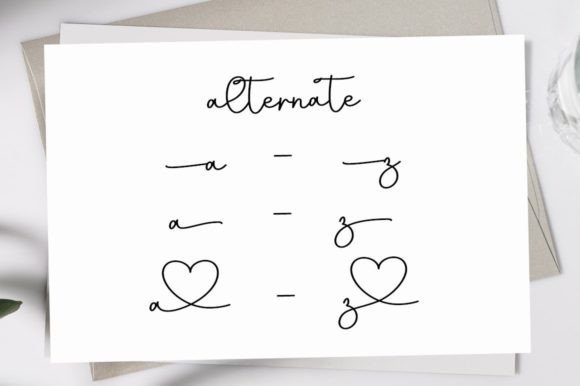 alternate
a - z
a - z
a - z